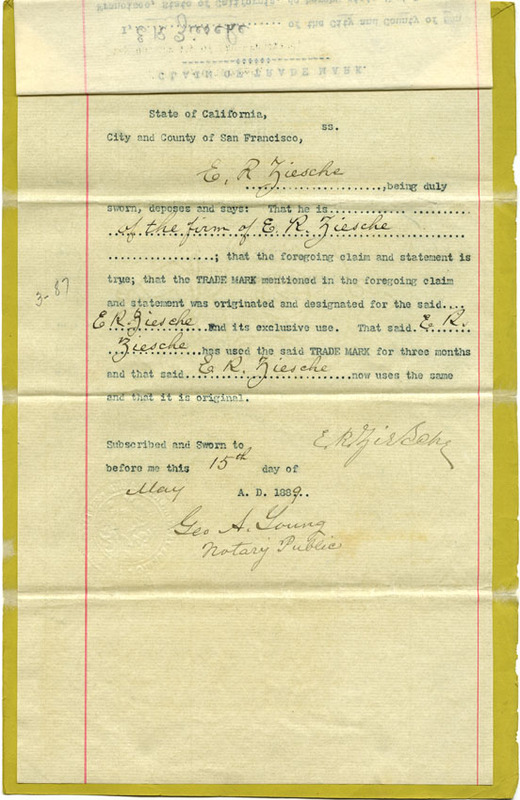 I, E. R. Ziesche of the City and County of San
CLAIM OF TRADE MARK.
State of California,
ss.
City and County of San Francisco,
E. R Ziesche
....................,being duly
sworn, deposes and says: That he is....................
of the firm of E. R. Ziesche
..................; that the foregoing claim and statement is
true; that the TRADE MARK mentioned in the foregoing claim
and statement was originated and designated for the said....
E R Ziesche and its exclusive use. That said E R.
Ziesche has used the said TRADE MARK for three months
and that said E R. Ziesche now uses the same
and that it is original.
3-87
Subscribed and Sworn to
E. R. Ziesche
before me this 15th day of
May A. D. 1889.
Geo A. Young
Notary Public